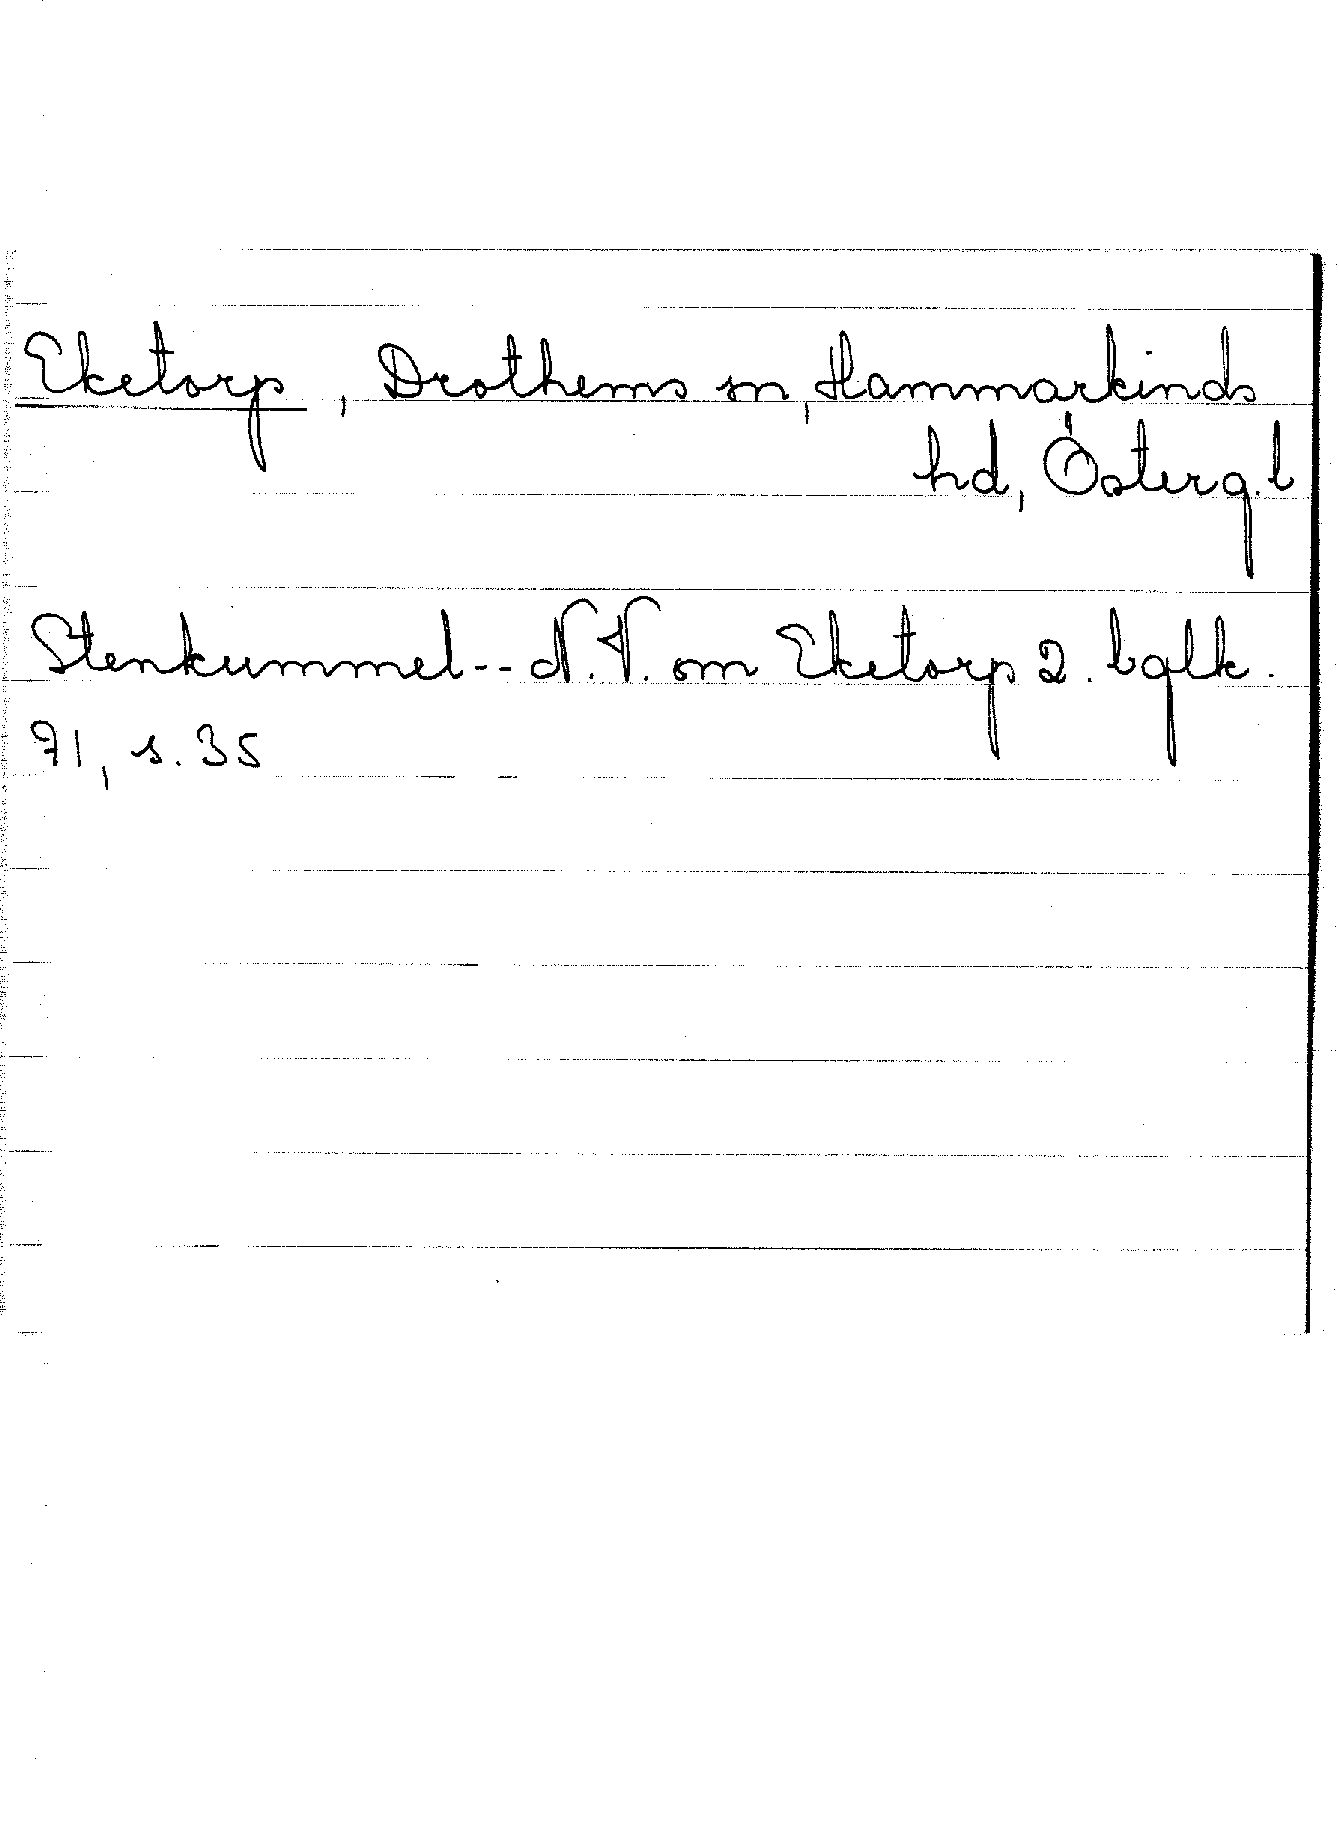 Eketorp, Drothems sn, Hammarkinds
hd, Österg. l
Stenkummel-- N.V. om Eketorp 2. bglk.
71, s. 35